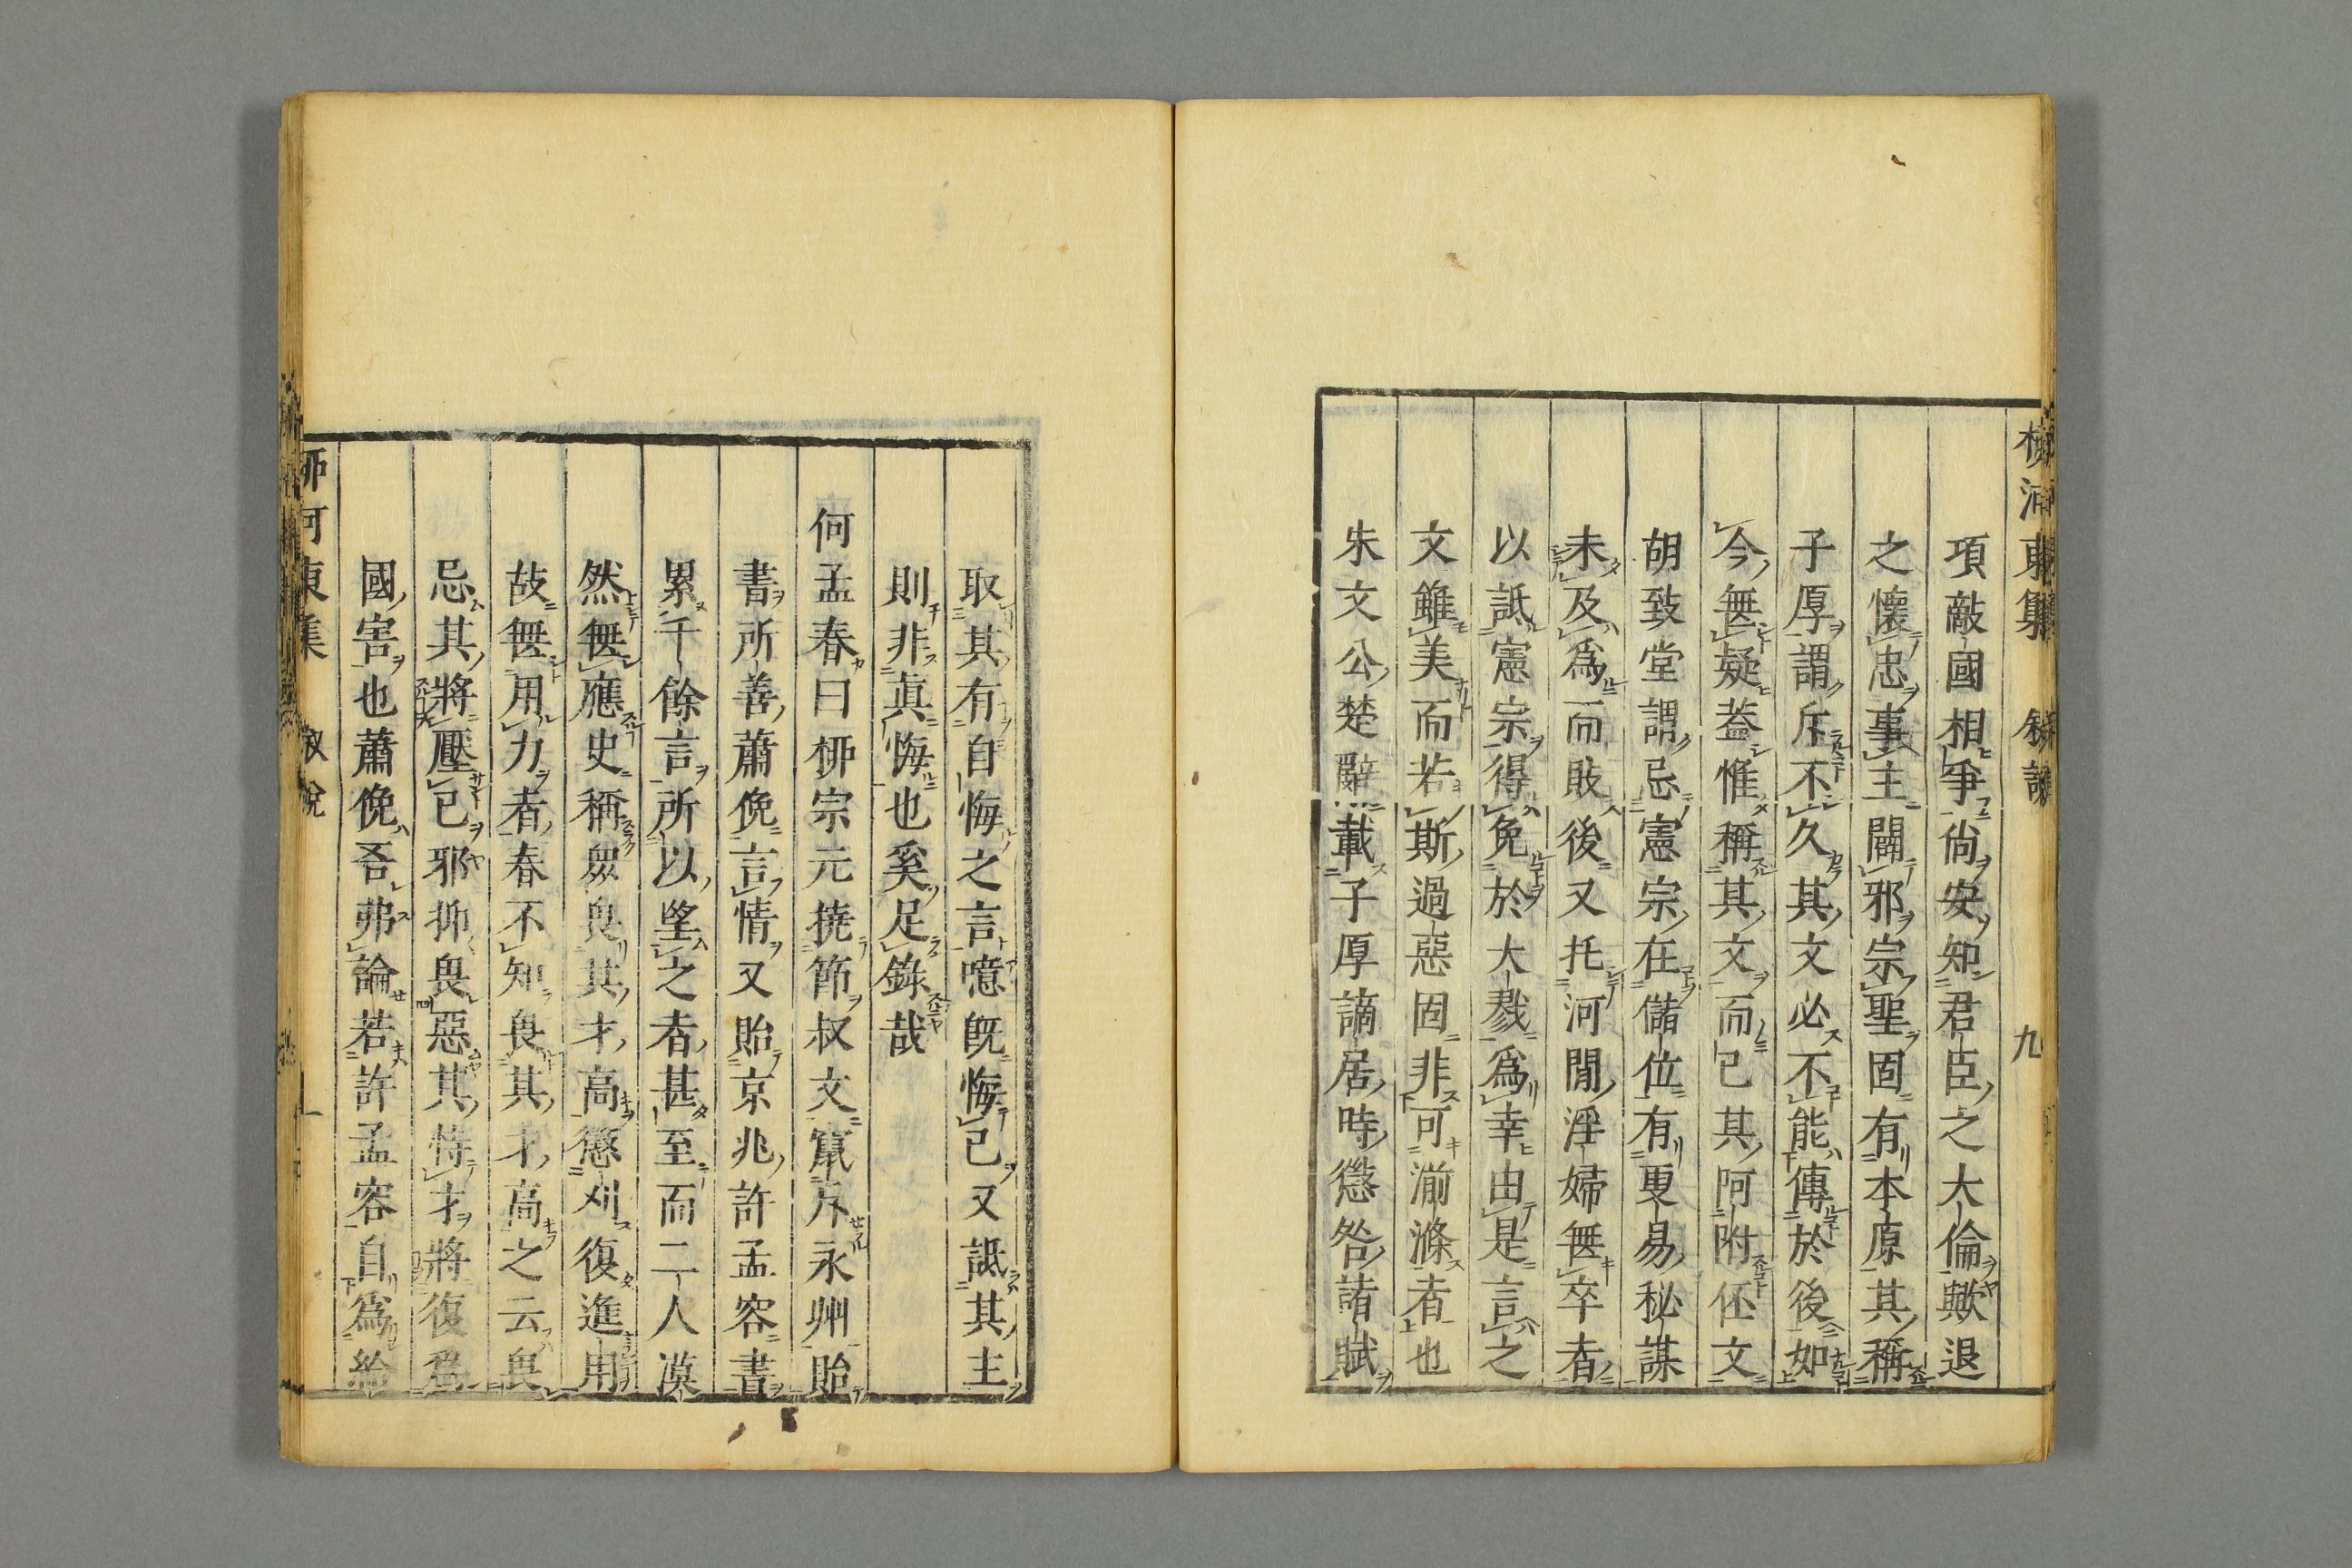 柳河東集 叙說 九
項敵國相爭尙安知君臣之大倫歟退
之懷忠事主闢邪宗聖固有本原其稱
子厚謂斥不久其文必不能傳於後如
今無疑葢惟稱其文而已其阿附伾文
胡致堂謂忌憲宗在儲位有更易秘謀
未及爲而敗後又托河間淫婦無卒者
以詆憲宗得免於大戮爲幸由是言之
文雖美而若斯過惡固非可湔滌者也
朱文公楚辭載子厚謫居時懲咎諸賦
取其有自悔之言噫旣悔已又詆其主
則非眞悔也奚足錄哉
何孟春曰柳宗元撓節叔文竄斥永州貽
書所善蕭俛言情又貽京兆許孟容書
累千餘言所以望之者甚至而二人漠
然無應史稱衆畏其才高懲刈復進用
故無用力者春不知畏其才高之云畏
忌其將壓已邪抑畏惡其恃才將復爲
國害也蕭俛吾弗論若許孟容自爲給
柳河東集 叙說